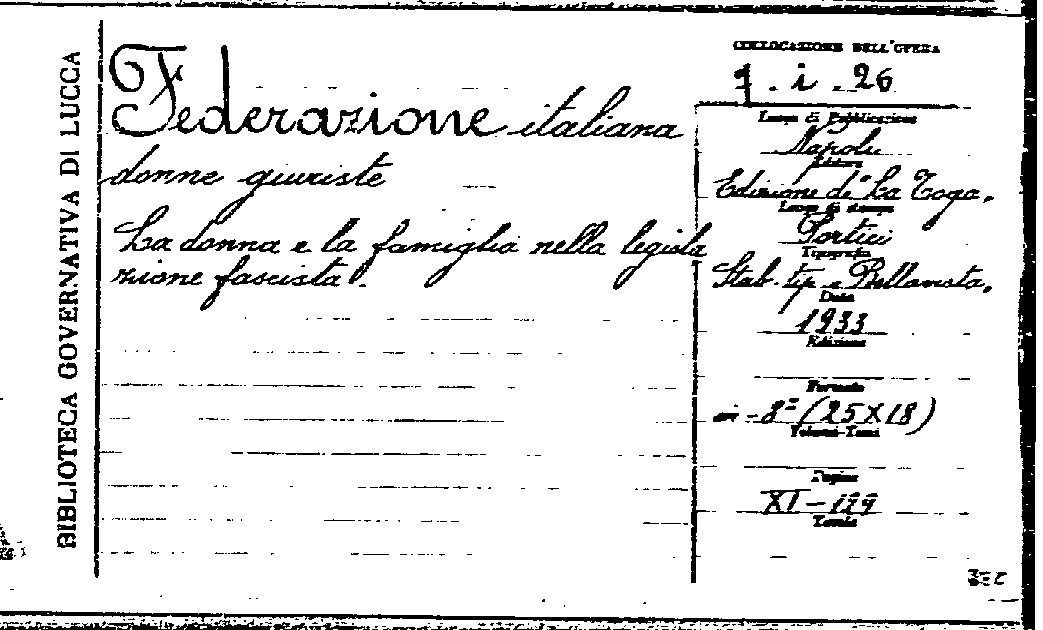 BIBLIOTECA GOVERNATIVA DI LUCCA
Federazione italiana
donne giuriste
La donna e la famiglia nella legisla
zione fascista.
COLLOCAZIONE DELL'OPERA
9. i. 26
Luogo di Pubblicazione
Napoli
Editore
Edizione di "La Toga.
Luogo di stampa
Portici
Tipografia
Stab. tip. e Bellavista.
Data
1933
Edizione
Formato
in-8º (25X18)
Volumi-Tomi
Pagine
XI-177
Tavole